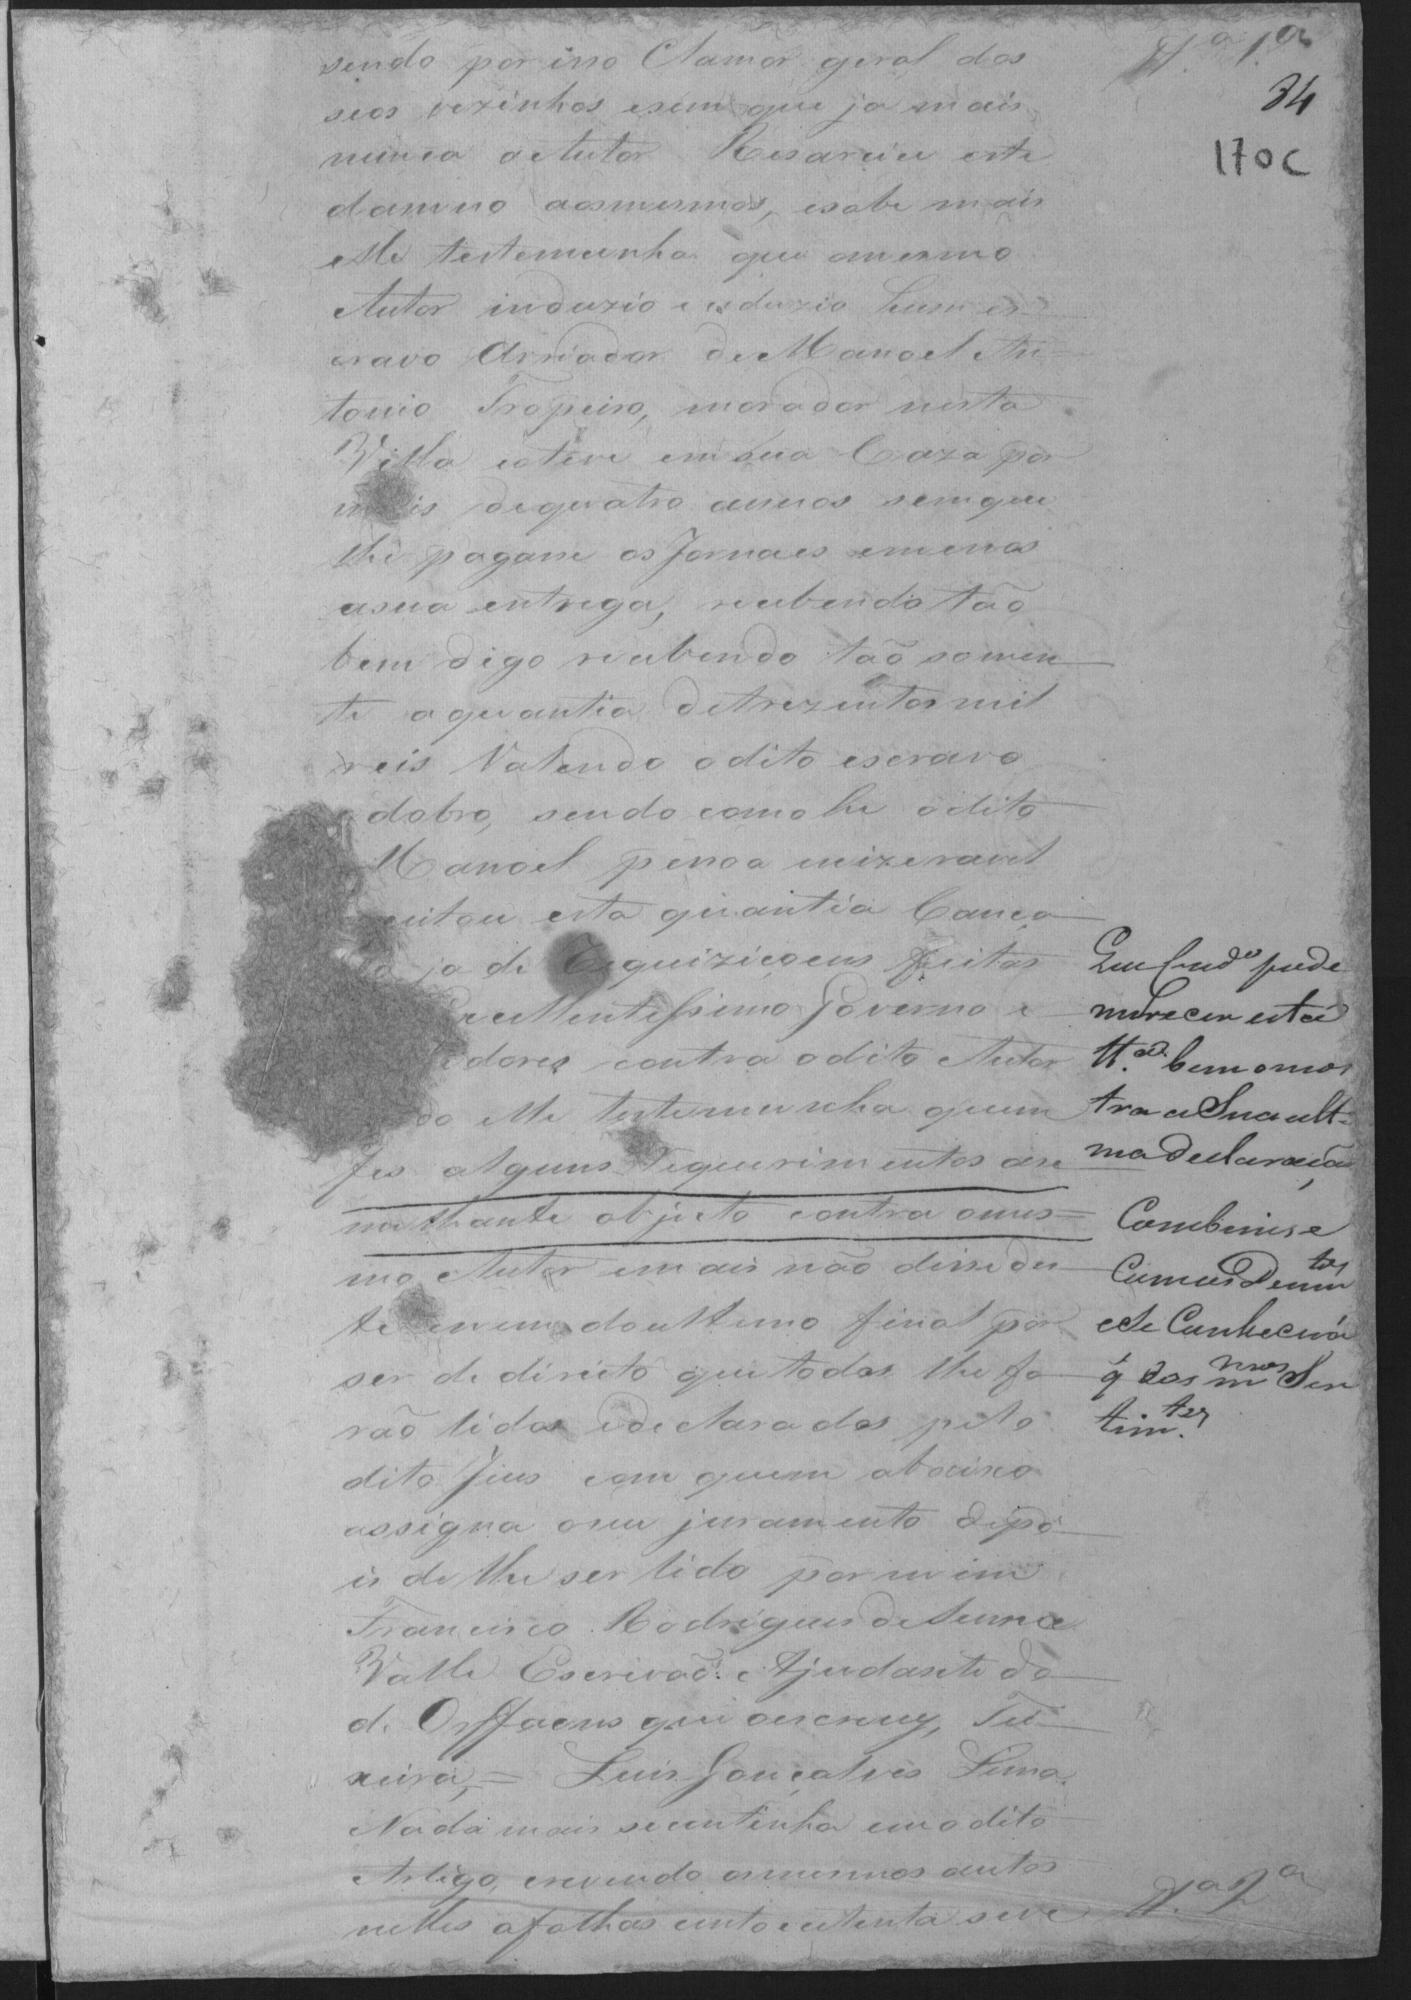 T.ª 1.ª
34
170C
sendo por isso Clamor geral dos
seos vezinhos esem que ja mais
nunca oAutor Resarcice este
damno aosmesmos, esabe mais
elle testemunha que omesmo
Autor induzio e seduzio hum es-
cravo Arriador de Manoel An=
tonio Tropeiro, morador nesta
Villa eoteve em sua Caza por
mais dequatro annos semque
lhe pagase os Jornaes emenos
asua entrega, recebendo tão
bem digo recebendo tão somen
te aquantia detrezentos mil
reis Valendo odito escravo
odobro, sendo como he odito
Manoel pessoa mizeravel
esta quantia Cança
ja de Requiziçoens feitas
Excellentissimo Governo e
contra odito Autor
elle testemunha quem
fes alguns requerimentos ase
melhante objeto contra omes=
mo Autor emais não disse des
te enem doultemo final por
ser de direito quetodos lhe fo
rão lidos edeclarados pelo
dito Juis com quem abaixo
assigna oseu juramento depo
is de lhe ser lido por mim
Francisco Rodrigues de
Valle Escrivaõ e Ajudante do
de Orffaons que oescrevy, Tei
xeira, = Luis Gonçalves Lima.
Nada mais secontinha emodito
Artigo, erevendo osmesmos autos
nelles afolhas centoeoitenta seve
Que Cred.º pode
merecer esta
tt.ª bem omos
tra aSua ult-
ma Declaração
Combinese
Comos Demin.tos
ese Conhecerá
q̃ sos mm.mos Sen
tim.tos
T.ª 2.ª